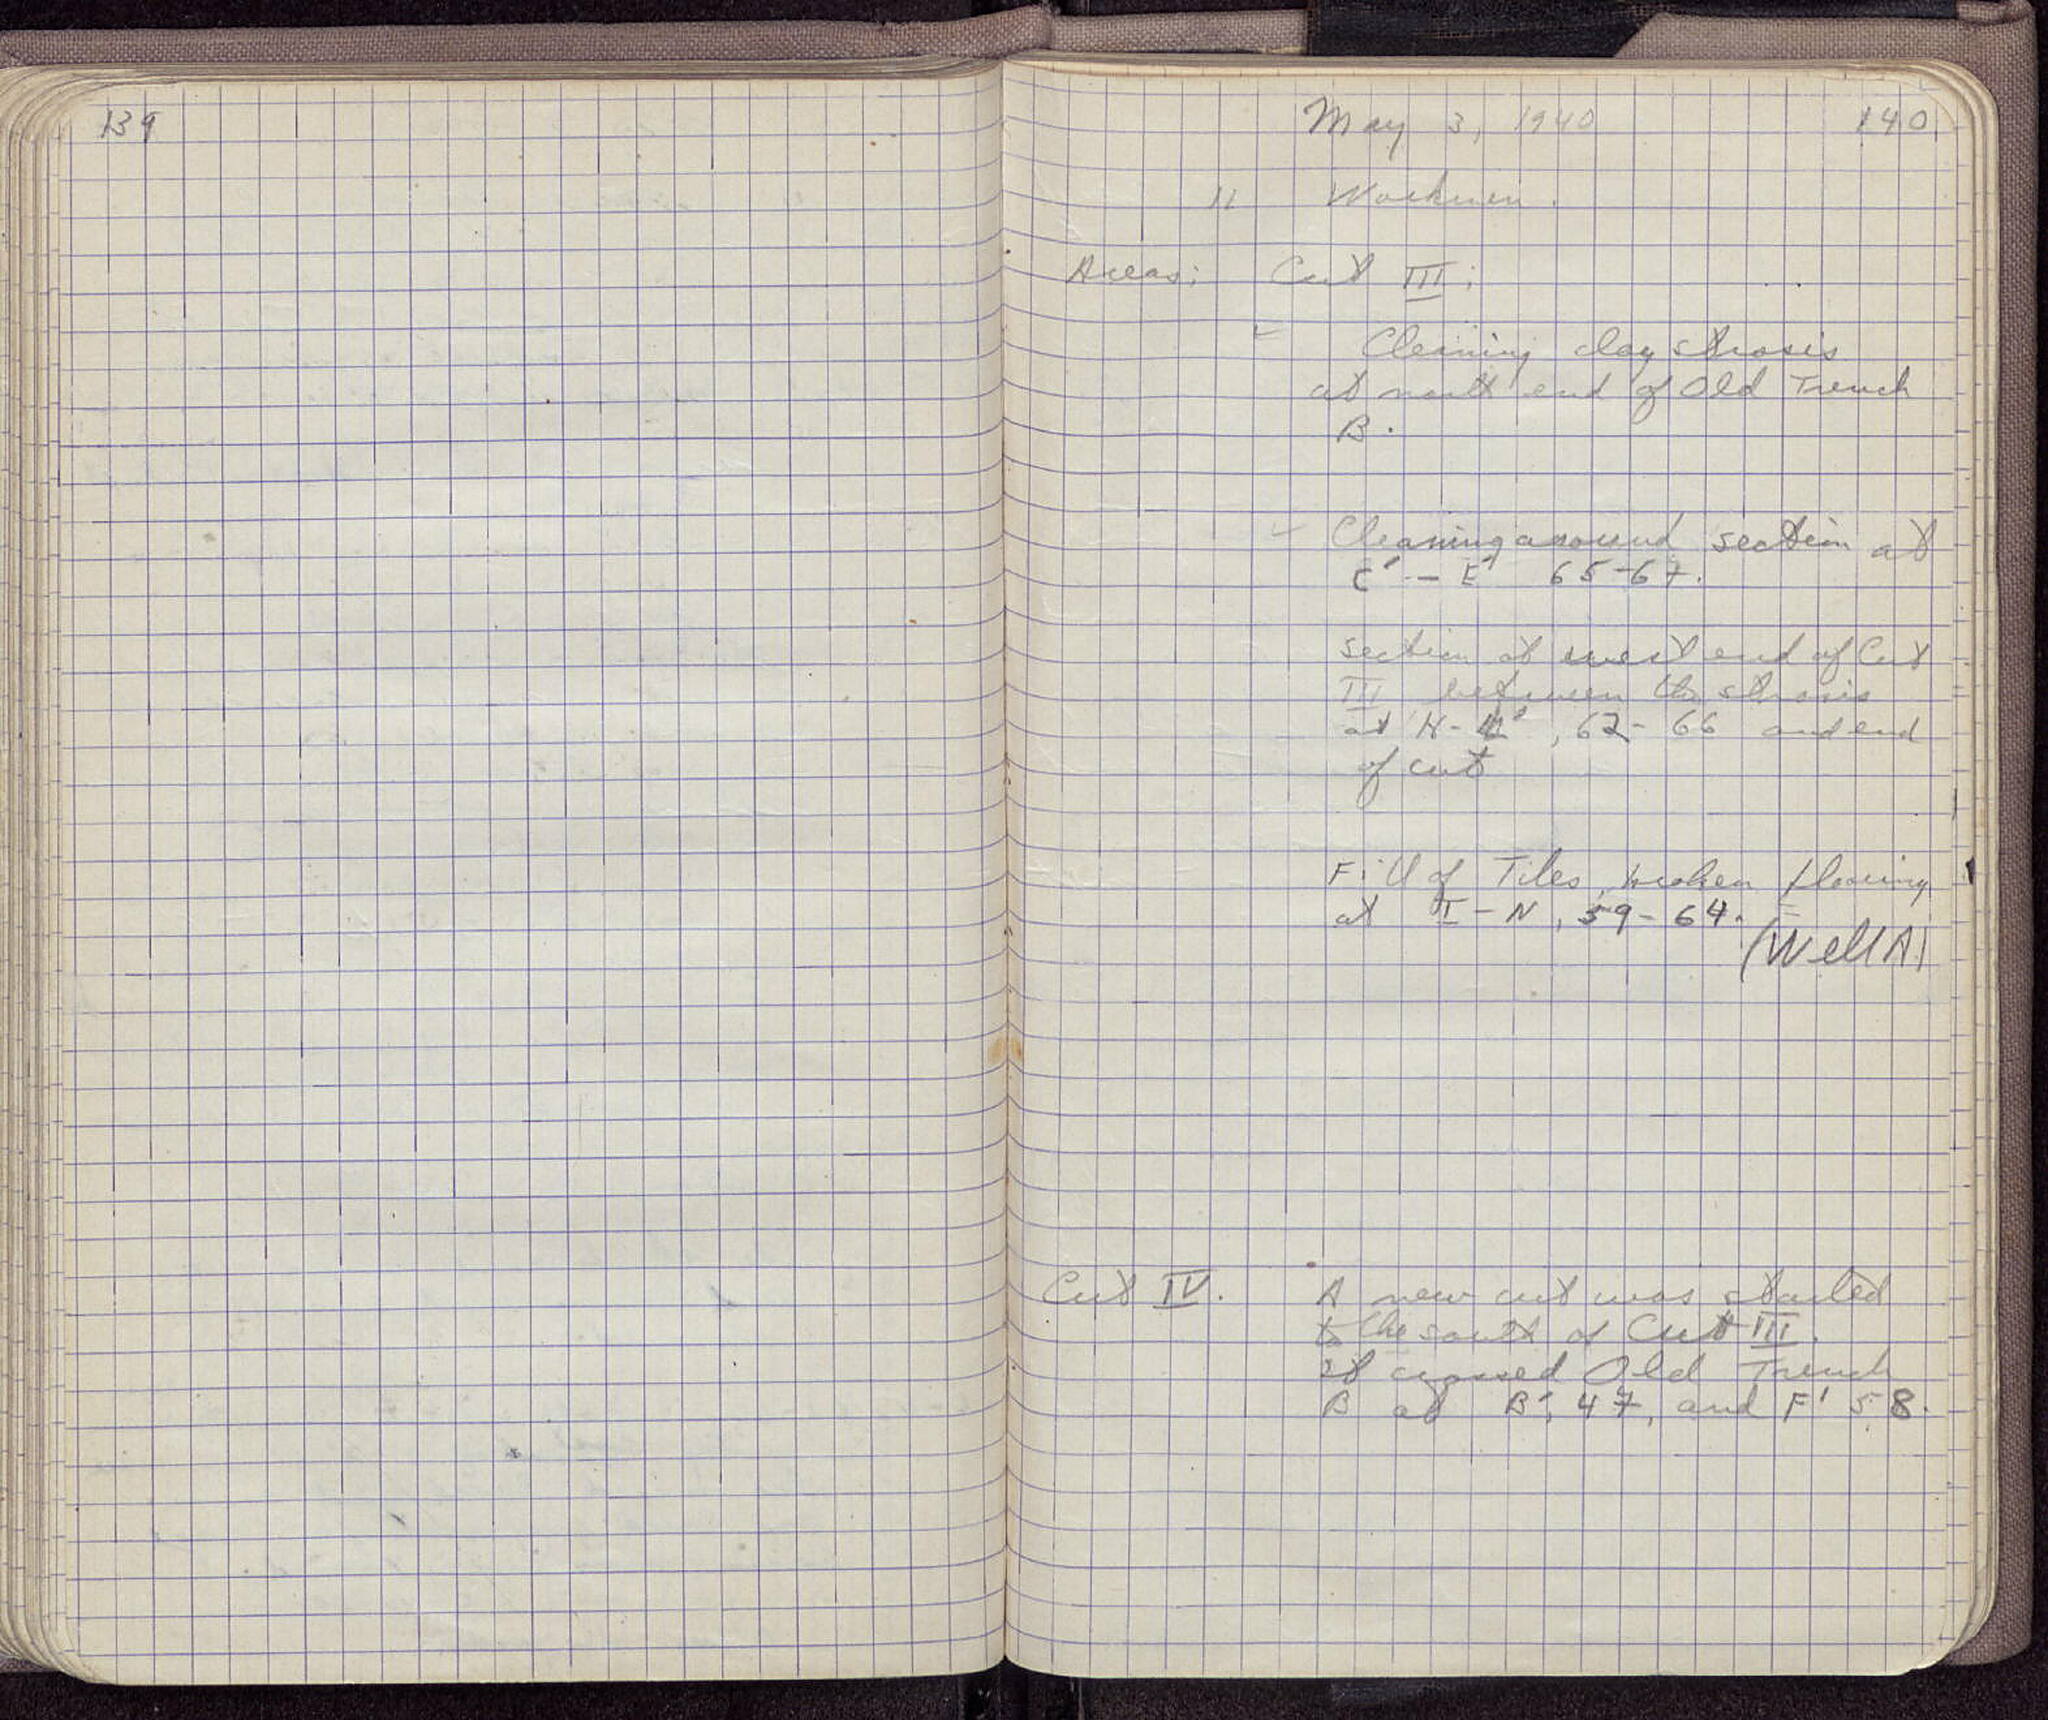 139
May 3, 1940 140
11 Workmen.
Areas: Cut III:
Cleaning clay strosis
at north end of Old Trench
B.
Cleaning around section at
C' — E' 65-67.
section at west end of Cut
III between the strosis
at H- , 62-66 and end
of cut
Fill of Tiles, broken flooring
at I-N, 59-64.
(Well A)
Cut IV. A new cut was started
to the south of Cut III.
It crossed Old Trench
B at B', 47, and F' 58.